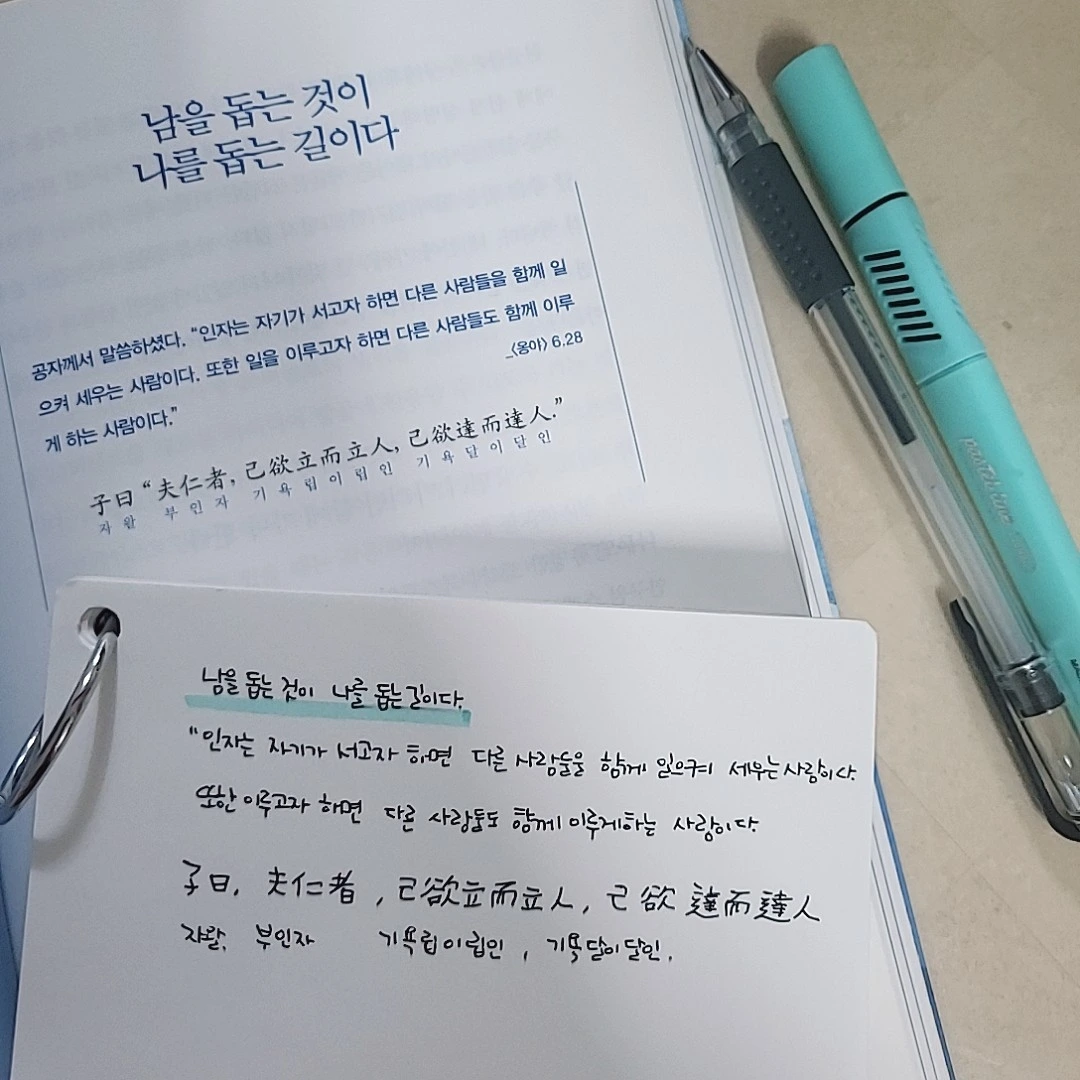 남을 돕는 것이
나를 돕는 길이다
공자께서 말씀하셨다. “인자는 자기가 서고자 하면 다른 사람들을 함께 일
으켜 세우는 사람이다. 또한 일을 이루고자 하면 다른 사람들도 함께 이루
게 하는 사람이다.”
_〈옹야〉 6.28
子曰 “夫仁者, 己欲立而立人, 己欲達而達人.”
자왈 부인자 기욕립이립인 기욕달이달인
pastel line
남을 돕는 것이 나를 돕는 길이다.
“인자는 자기가 서고자 하면 다른 사람들을 함께 일으켜 세우는 사람이다.
또한 이루고자 하면 다른 사람들도 함께 이루게하는 사람이다.
子曰, 夫仁者, 己欲立而立人, 己欲達而達人
자왈, 부인자 기욕립이립인, 기욕달이달인.